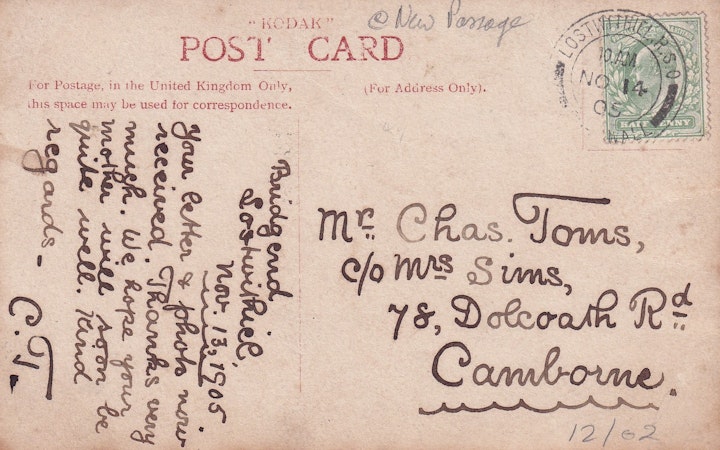 @ New Passage
"KODAK"
POST CARD
For Postage, in the United Kingdom Only,
this space may be used for correspondence.
(For Address Only).
LOSTWITHIEL R.S.O
10 AM
NO 14
05
HALFPENNY
Bridgend
Lostwithiel,
Nov. 13, 1905
Your letter & photo now
received. Thanks very
much. We hope your
mother will soon be
quite well. Kind
regards–
C.T–
Mr. Chas. Toms,
c/o Mrs Sims,
78, Dolcoath Rd
Camborne.
12/02